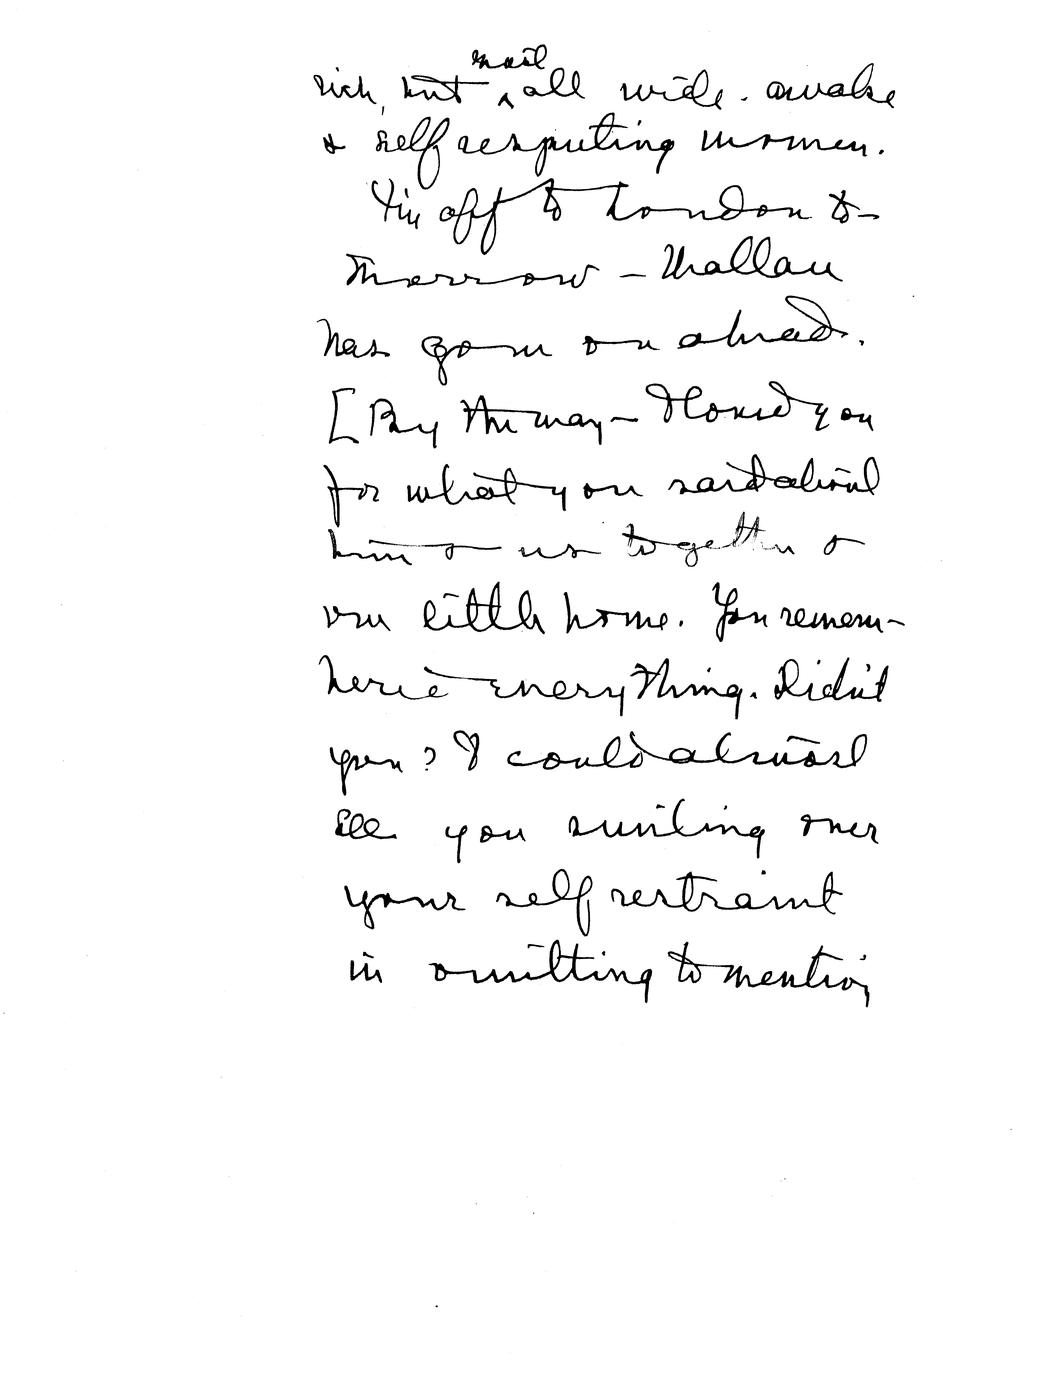 rich, but most all wide-awake
& self respecting women.
I'm off to London to-
morrow – Wallace
has gone on ahead.
[By the way – I loved you
for what you said about
him & us together &
our little home. You remem-
bered everything. Didn't
you? I could almost
see you smiling over
your self restraint
in omitting to mention